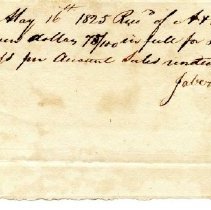 May 16th 1825 Recd of A
dollars 78/100 in full for
per Account Sales
Jaber